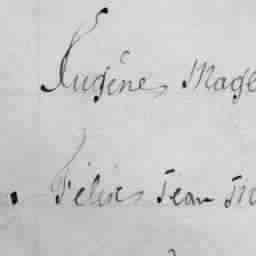 Eugène Mage
Félix Jean